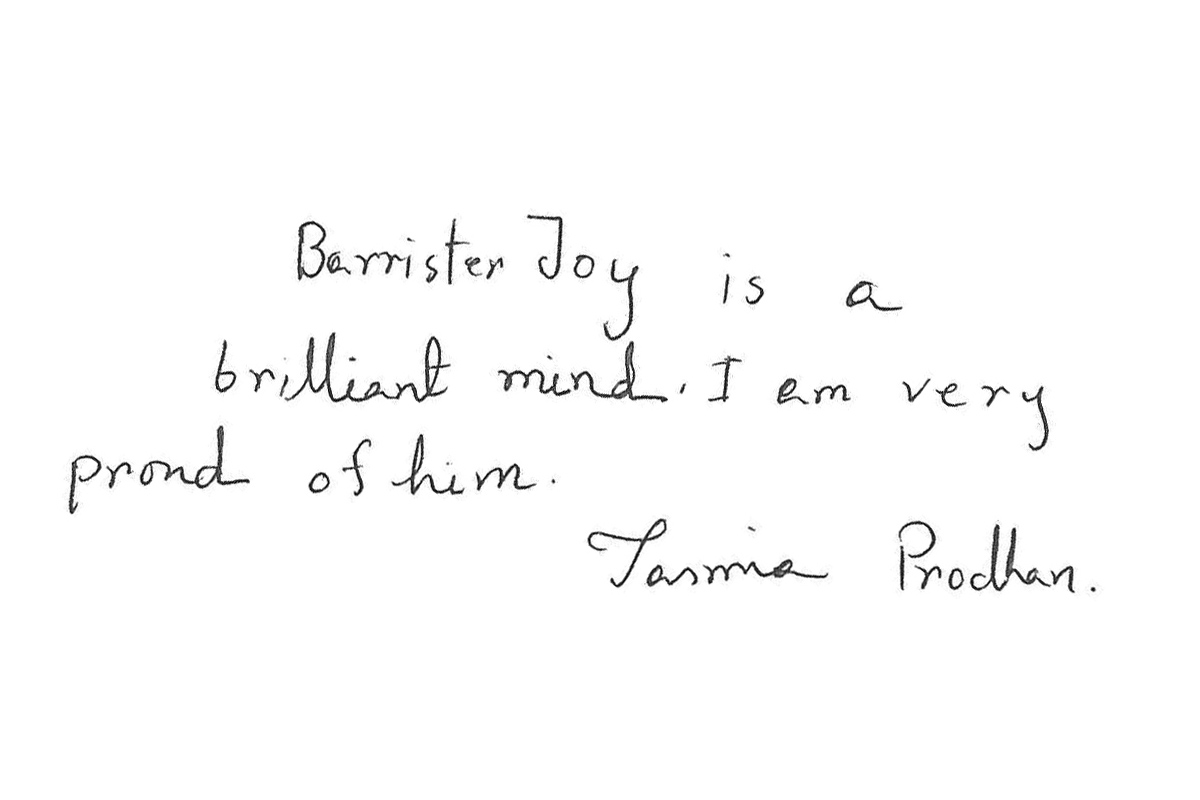 Barrister Joy is a
brilliant mind. I am very
proud of him.
Tasmia Prodhan.